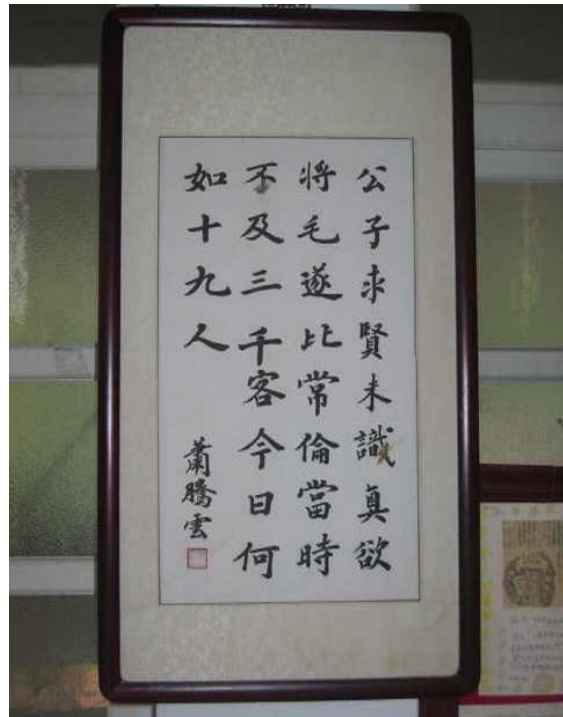 公子求賢未識真欲
將毛遂比常倫當時
不及三千客今日何
如十九人
蕭騰雲